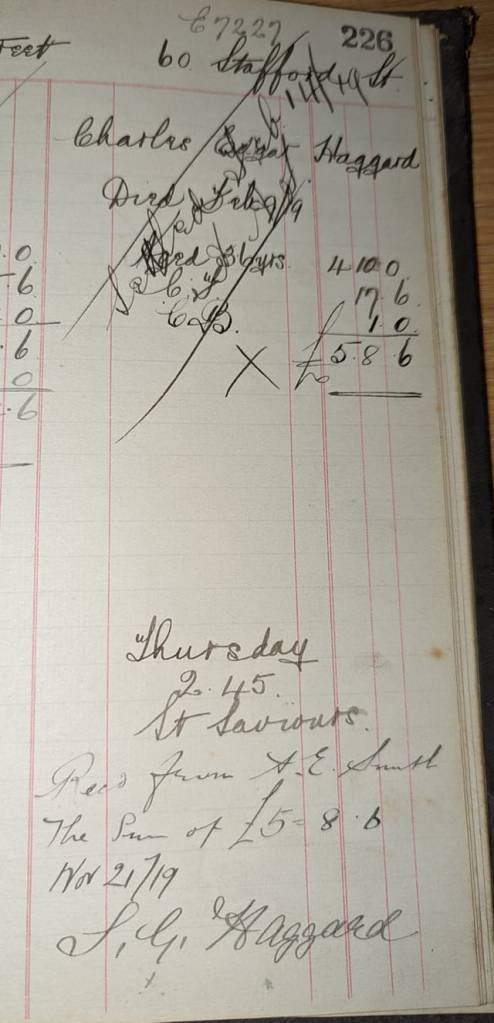 E7227
226
Feet
60 Stafford St.
Charles Haggard
Died Feb 9/19
Aged 36 yrs. 4 10 0.
0. C. S. 17. 6.
6 C.B. 1. 0.
0
6 X £5. 8. 6
0
. 6
Thursday
2. 45.
St Saviours.
Recd from A. E. Smith
The Sum of £5 = 8. 6
Nov 21/19
S. G. Haggard